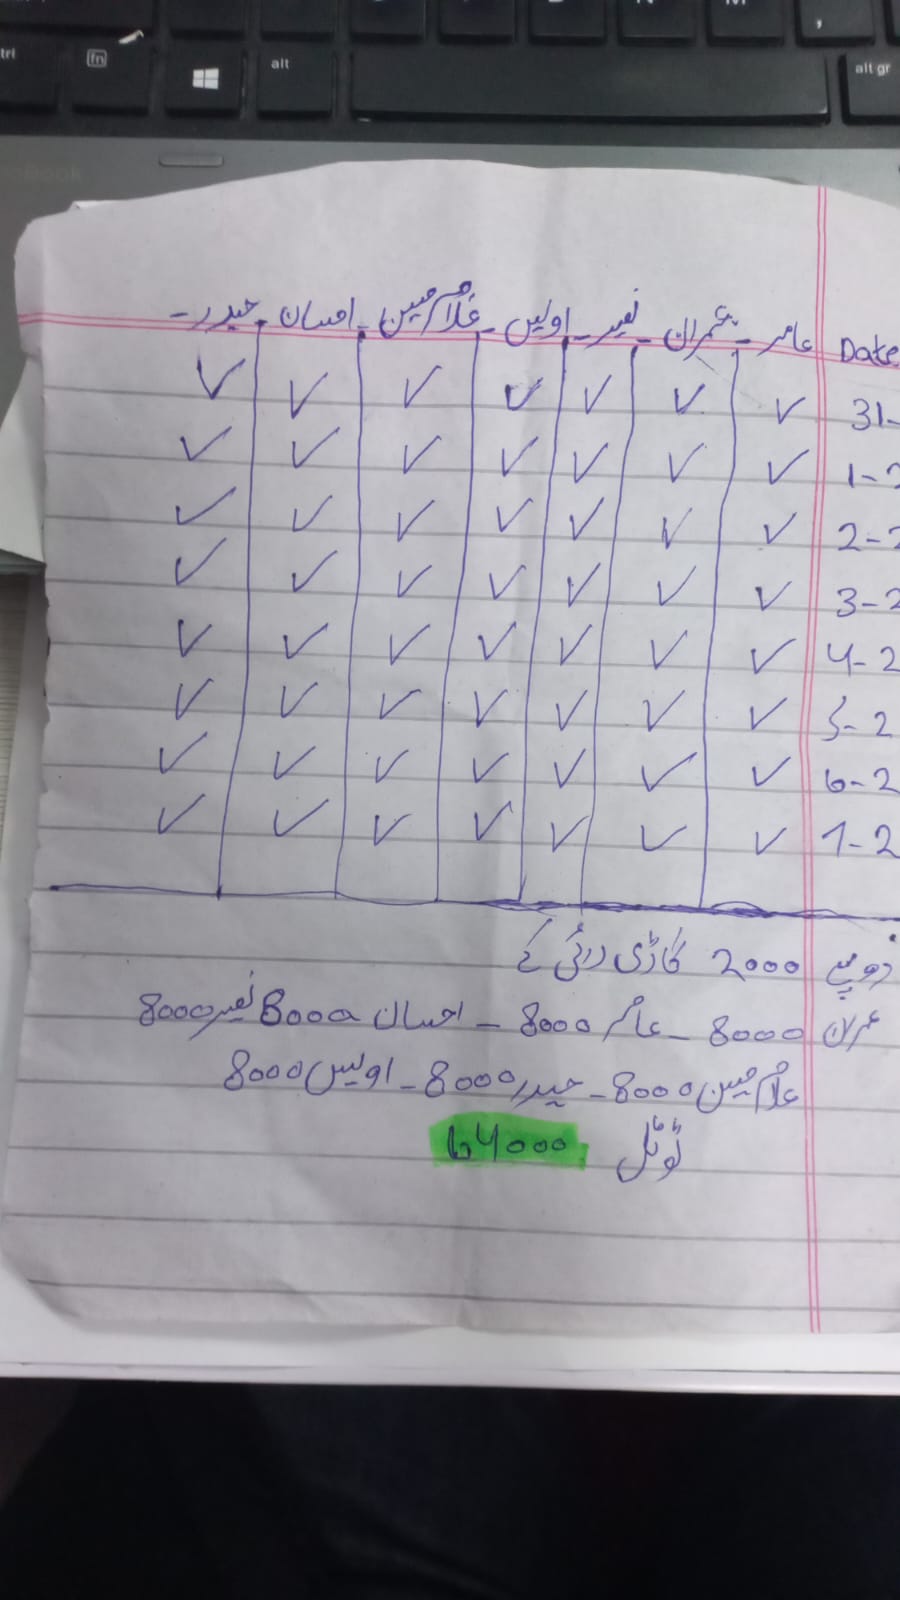 fn
alt
alt gr
Date عامر - عمران - نصیر - اویس - غلام مبین - احسان - حیدر -
31- ✓ ✓ ✓ ✓ ✓ ✓ ✓
1-2 ✓ ✓ ✓ ✓ ✓ ✓ ✓
2-2 ✓ ✓ ✓ ✓ ✓ ✓ ✓
3-2 ✓ ✓ ✓ ✓ ✓ ✓ ✓
4-2 ✓ ✓ ✓ ✓ ✓ ✓ ✓
5-2 ✓ ✓ ✓ ✓ ✓ ✓ ✓
6-2 ✓ ✓ ✓ ✓ ✓ ✓ ✓
7-2 ✓ ✓ ✓ ✓ ✓ ✓ ✓
روپے 2000 گاڑی کے
عمران 8000 - عامر 8000 - احسان 8000 نصیر 8000
غلام مبین 8000 - حیدر 8000 - اویس 8000
ٹوٹل 64000